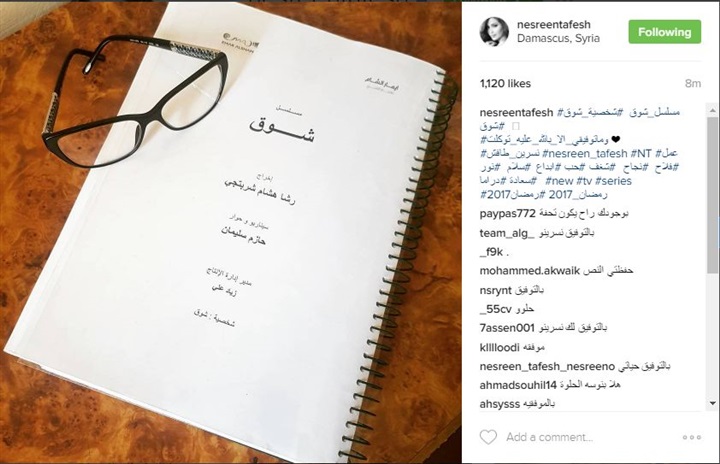 ايمار الشام
EMAR ALSHAM
مسلسل
شوق
إخراج
رشا هشام شربتجي
سيناريو و حوار
حازم سليمان
مدير إدارة الإنتاج
زياد علي
شخصية : شوق
nesreentafesh
Damascus, Syria
Following
1,120 likes
8m
nesreentafesh #مسلسل_شوق #شخصية_شوق
#شوق
#وماتوفيقي_الا_بالله_عليه_توكلت
#نسرين_طافش #nesreen_tafesh #NT #عمل
#فلاح #نجاح #شغف #حب #ابداع #سلام #نور
#سعادة #دراما #new #tv #series
#رمضان_2017 #رمضان2017
paypas772 بوجودك راح يكون تحفة
team_alg_ بالتوفيق نسرينو
_f9k .
mohammed.akwaik حفظتي النص
nsrynt بالتوفيق
_55cv حلوو
7assen001 بالتوفيق لك نسرينو
klllloodi موفقه
nesreen_tafesh_nesreeno بالتوفيق حياتي
ahmadsouhil14 هلا بنوسه الحلوة
ahsysss بالموفقيه
Add a comment...